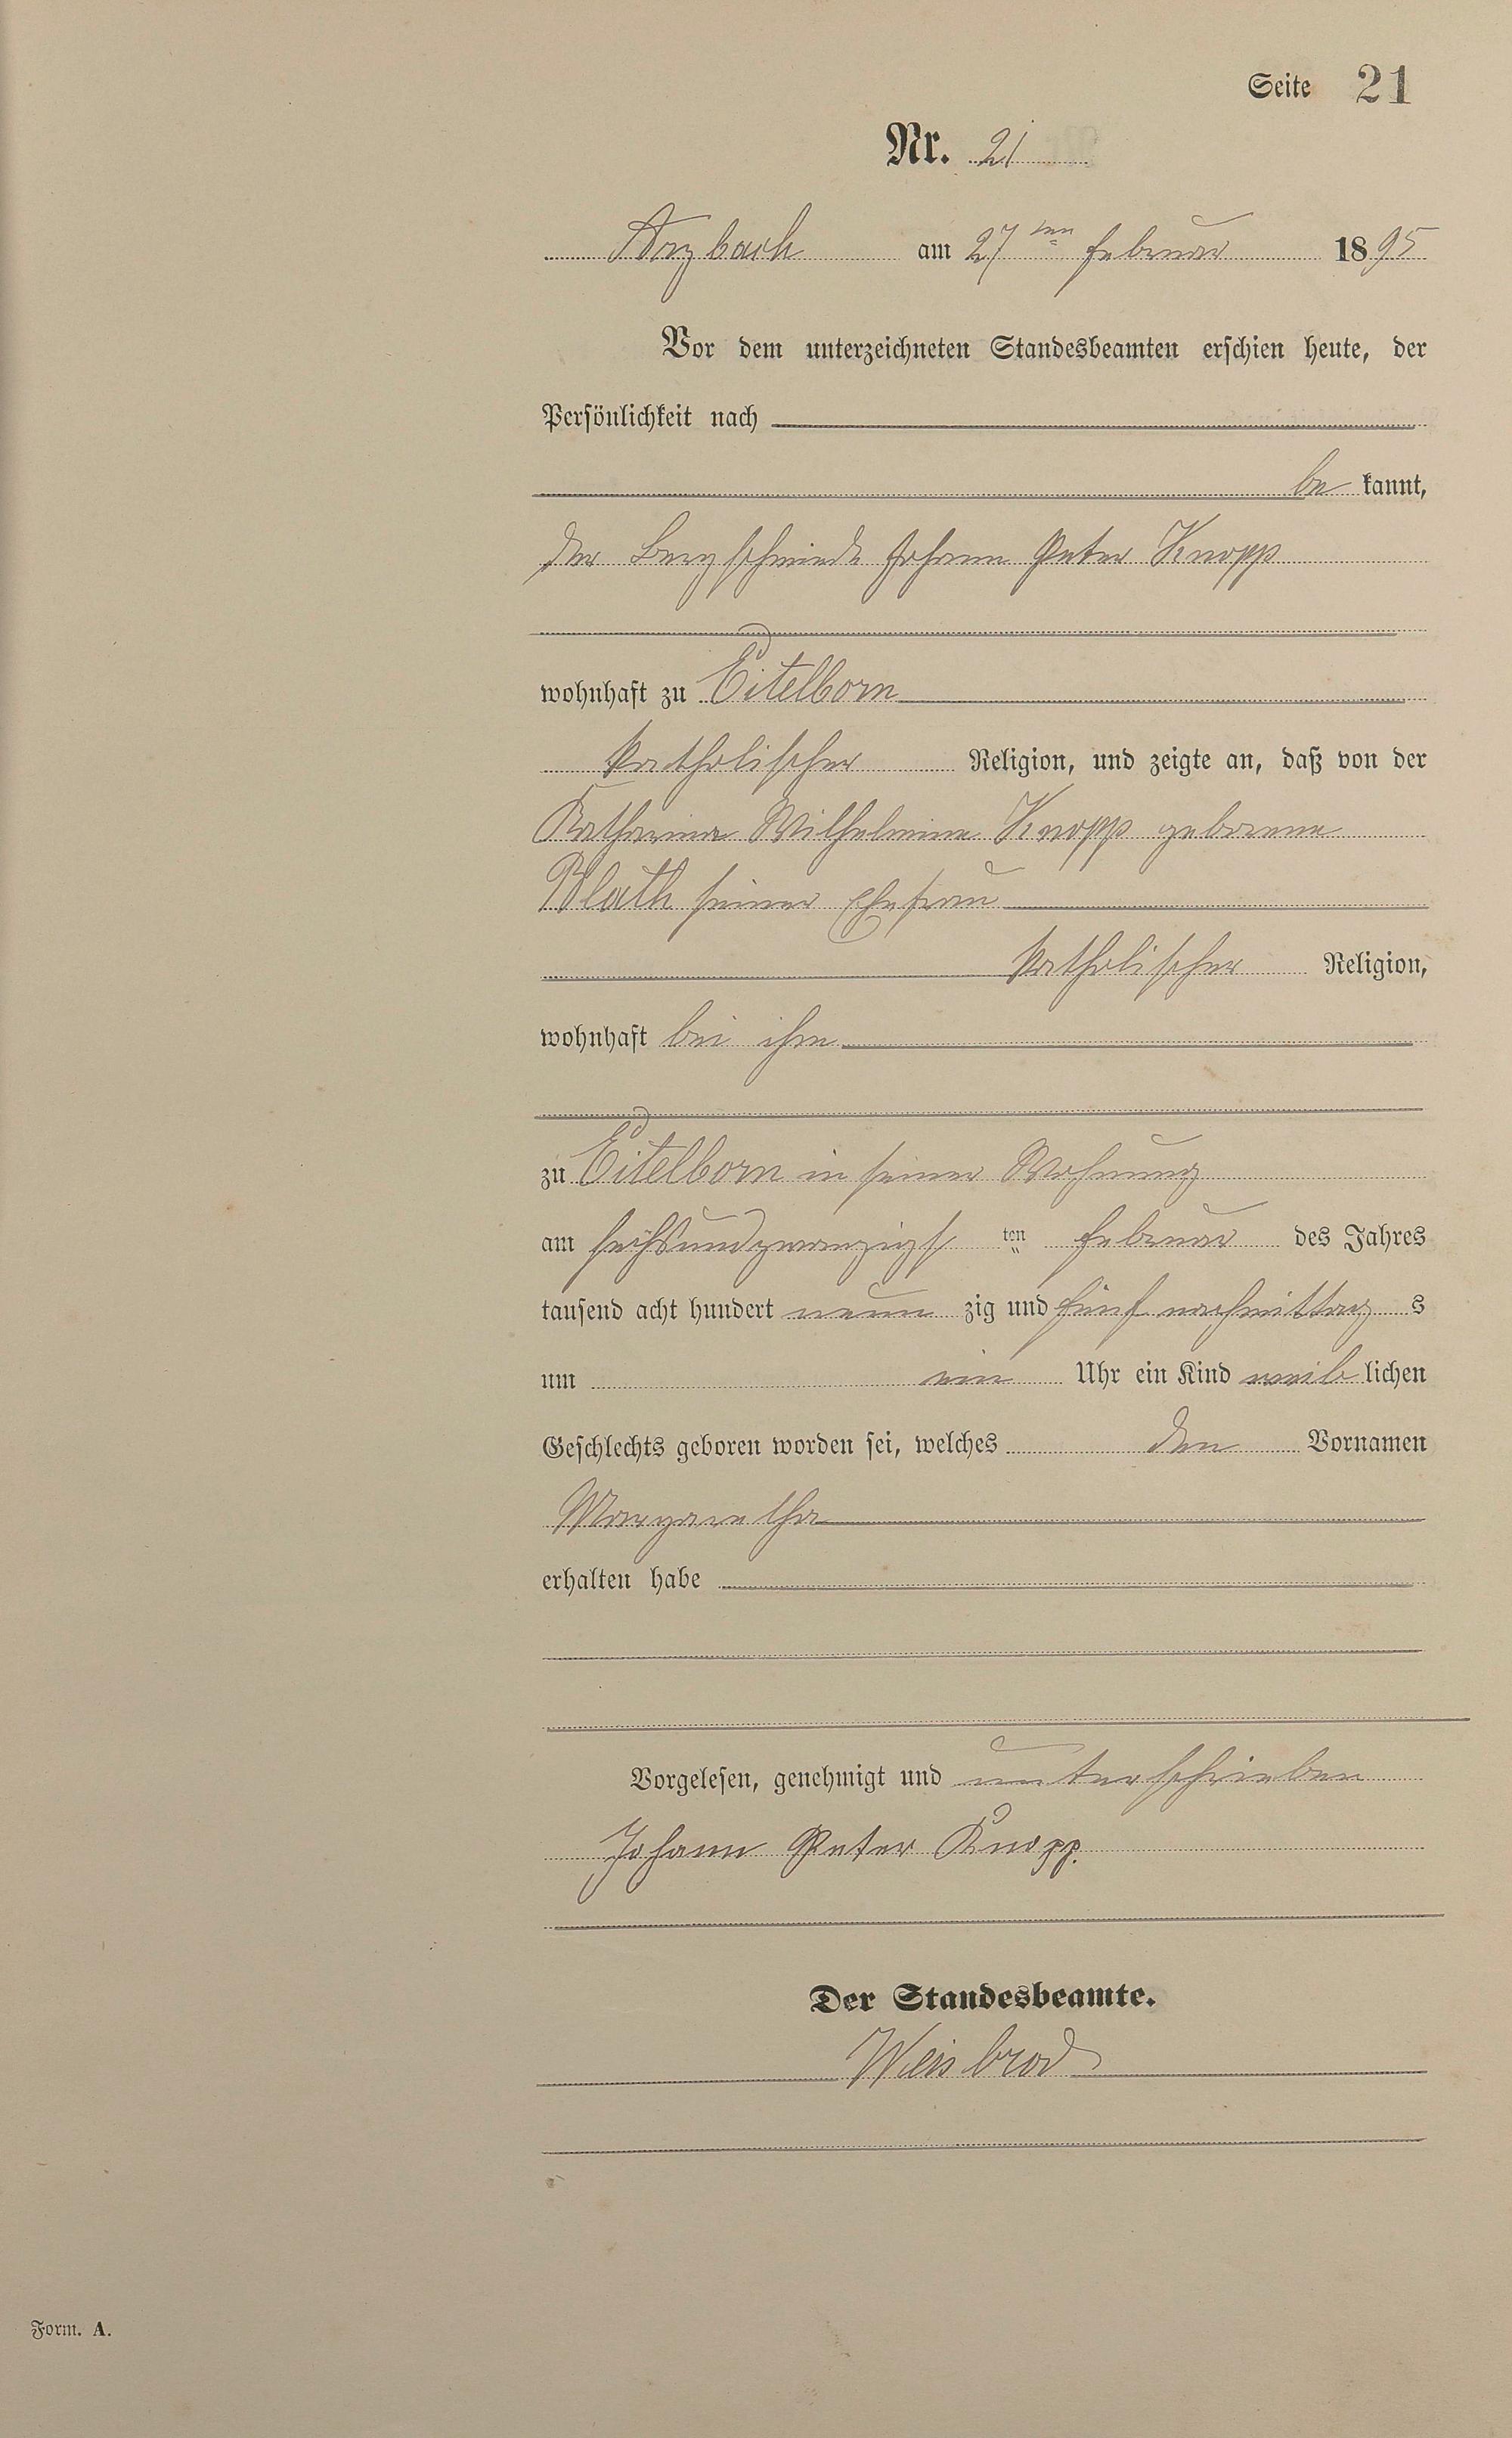 Seite 21
Nr. 21
Arzbach am 27ten Februar 1895
Vor dem unterzeichneten Standesbeamten erschien heute, der
Persönlichkeit nach
be kannt,
der Bergschmiede Johann Peter Knopp
wohnhaft zu Eitelborn
katholischer Religion, und zeigte an, daß von der
Katharina Wilhelmine Knopp geborene
Blath seiner Ehefrau
katholischer Religion,
wohnhaft bei ihm
zu Eitelborn in seiner Wohnung
am sechsundzwanzigsten Februar des Jahres
tausend acht hundert neun zig und fünf nachmittag s
um ein Uhr ein Kind weib lichen
Geschlechts geboren worden sei, welches den Vornamen
Margaretha
erhalten habe
Vorgelesen, genehmigt und unterschrieben
Johann Peter Knopp.
Der Standesbeamte.
Weisbrod
Form. A.